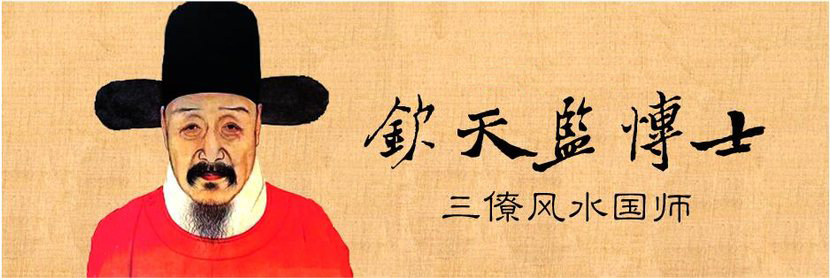 欽天監慱士
三僚风水国师